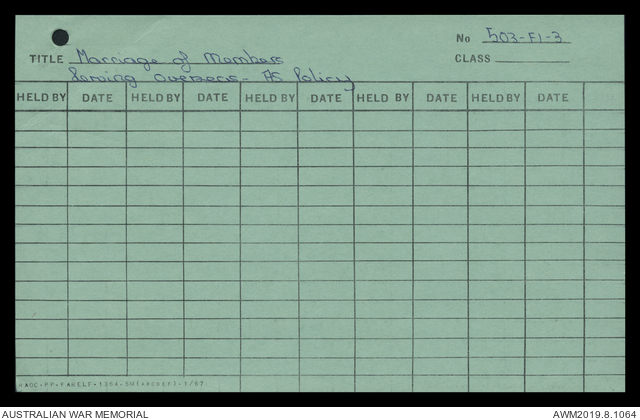 No 503-F1-3
TITLE Marriage of Members
CLASS
Serving overseas - AS Policy
HELD BY DATE HELD BY DATE HELD BY DATE HELD BY DATE HELD BY DATE
AUSTRALIAN WAR MEMORIAL AWM2019.8.1064